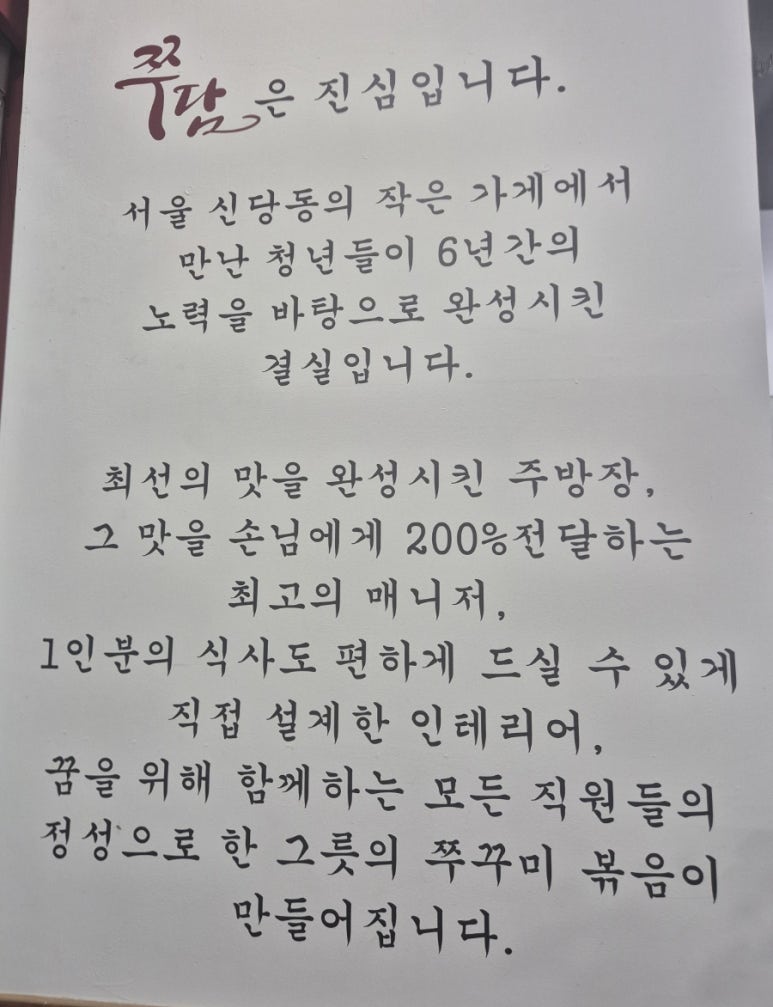 쭈담은 진심입니다.
서울 신당동의 작은 가게에서
만난 청년들이 6년간의
노력을 바탕으로 완성시킨
결실입니다.
최선의 맛을 완성시킨 주방장,
그 맛을 손님에게 200%전달하는
최고의 매니저,
1인분의 식사도 편하게 드실 수 있게
직접 설계한 인테리어,
꿈을 위해 함께하는 모든 직원들의
정성으로 한 그릇의 쭈꾸미 볶음이
만들어집니다.